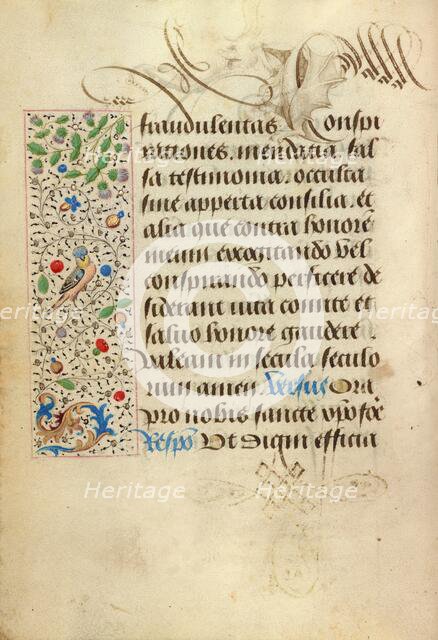 fraudulentas Conspi
rationes. mendatia fal
sa testimonia. occulta
siue apperta consilia. et
alia que contra honore
meum exogitando vel
conspirando perficere de
siderant uita comite et
saluo honore gaudere
valeam in secula seculo
rum amen. Versus Ora
pro nobis sancte
Respo Ut digni efficia
Heritage Heritage
Heritage Heritage Heritage
Heritage Heritage